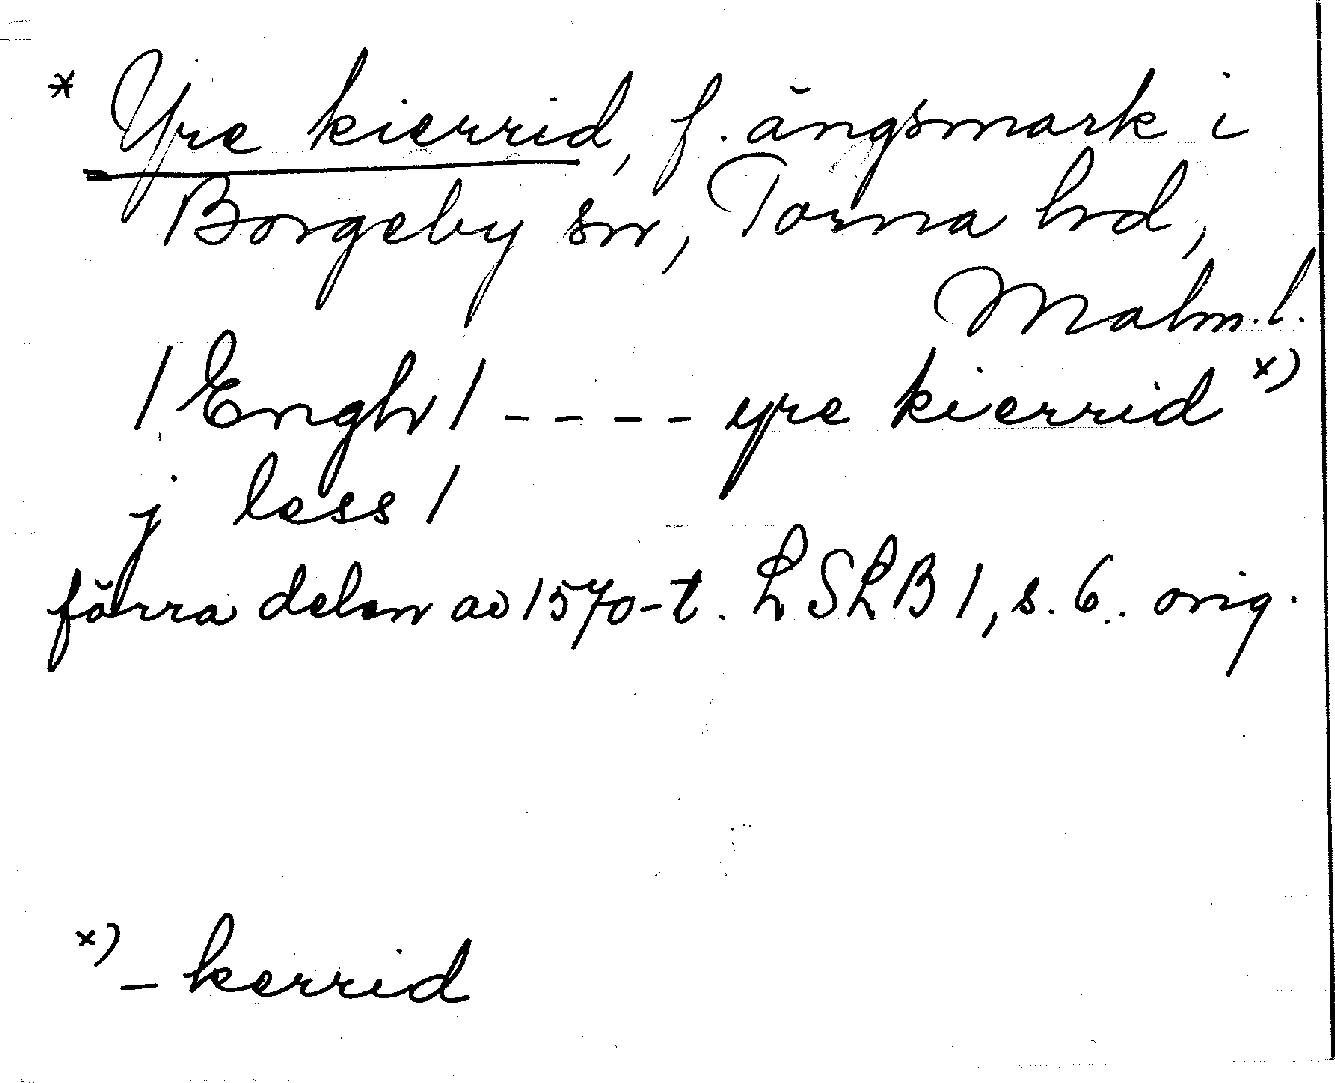 * Yre kierrid, f. ängsmark i
Borgeby sn, Torna hd,
Malm.l.
/Engh/ - - - - yre kierrid x)
j less/
förra delen av 1570-t. LSLB 1, s. 6. orig.
x) - kerrid